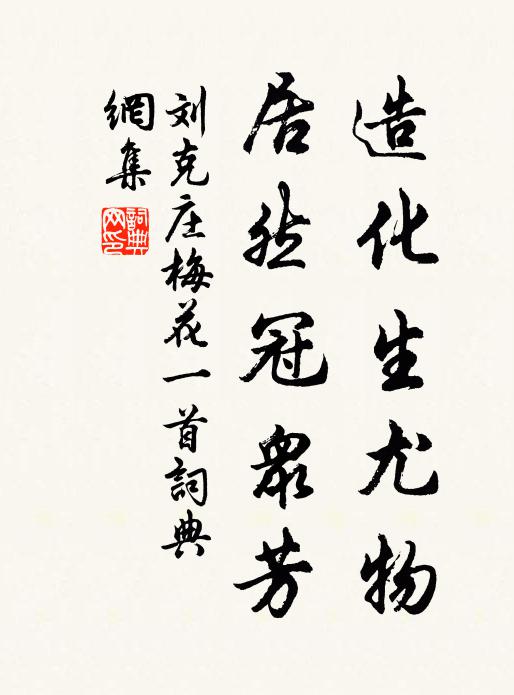 造化生尤物
居然冠眾芳
刘克庄梅花一首詞典
網集
詞典
网印